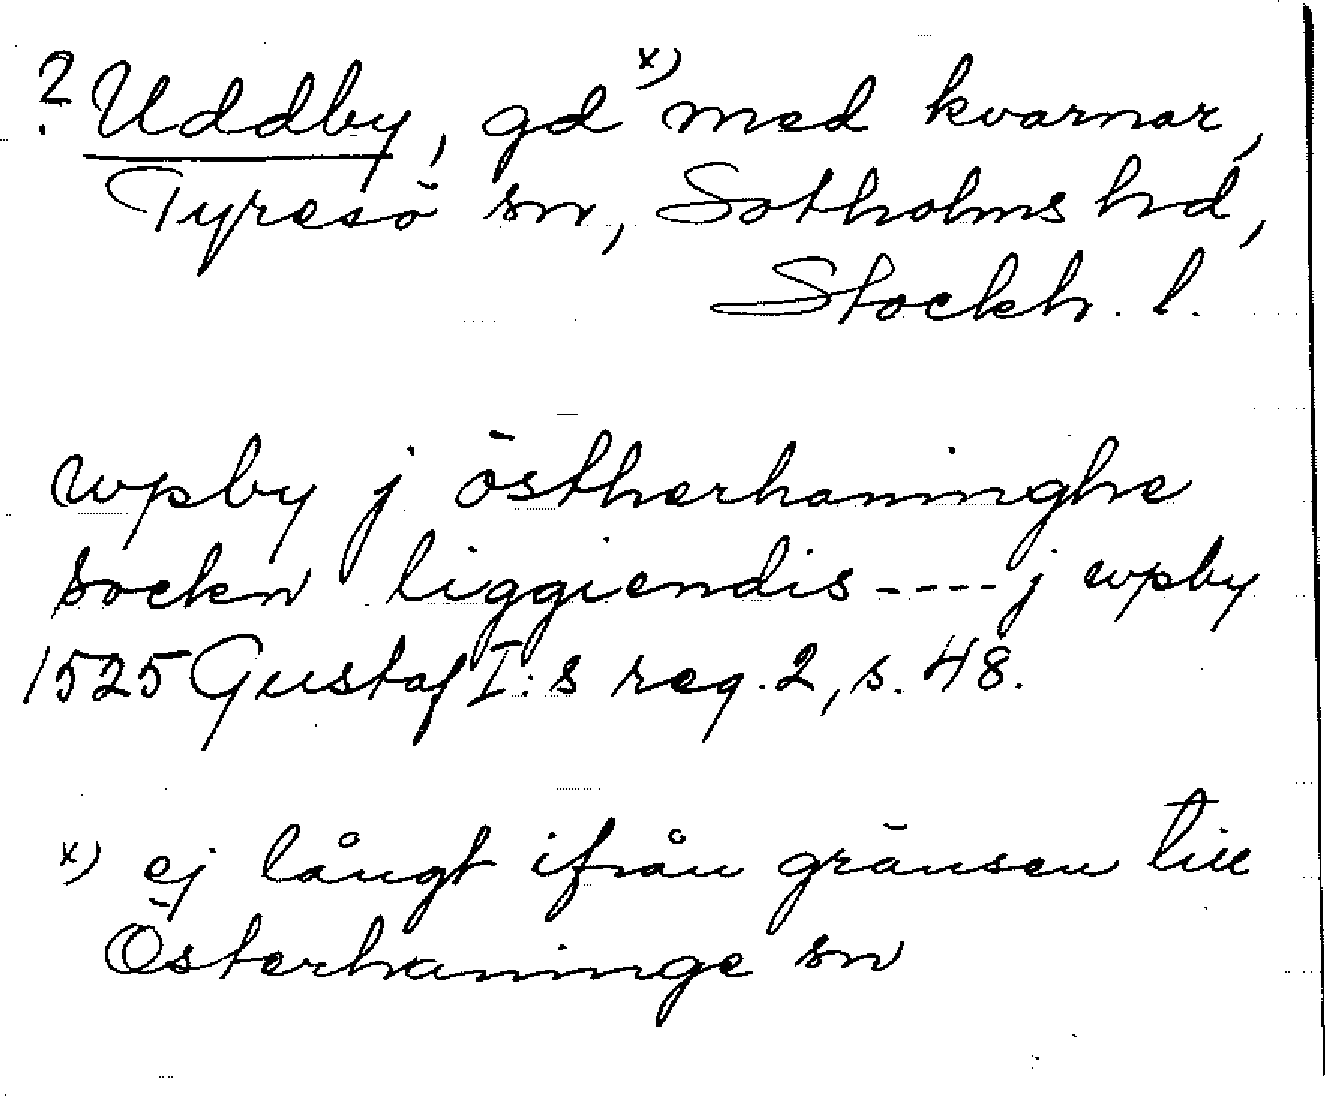 ? Uddby, gd x) med kvarnar,
Tyresö sn, Sotholms hd,
Stockh. l.
wpby j östherhaninghe
sockn liggiendis ---- j wpby
1525 Gustaf I:s reg. 2, s. 48.
x) ej långt ifrån gränsen till
Österhaninge sn